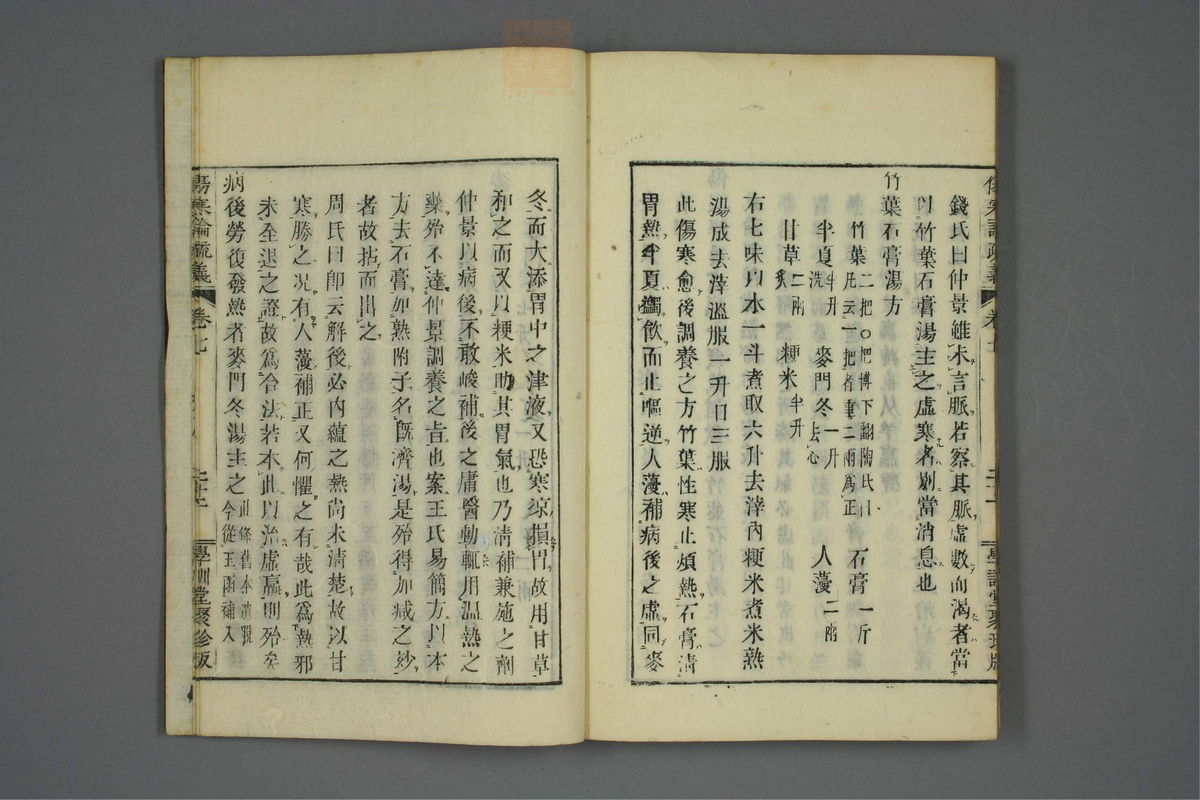 傷寒論疏義 卷七 學訓堂聚珍版
錢氏曰仲景雖未言脈若察其脈虛數而渴者當
以竹葉石膏湯主之虛寒者別當消息也
竹葉石膏湯方
竹葉二把○把博下翻陶氏曰凡云一把者重二兩爲正 石膏一斤
半夏半升洗 麥門冬一升去心 人蓡二兩
甘草二兩炙 粳米半升
右七味以水一斗煮取六升去滓內粳米煮米熟
湯成去滓溫服一升日三服
此傷寒愈後調養之方竹葉性寒止煩熱石膏清
胃熱半夏蠲飲而止嘔逆人蓡補病後之虛同麥
冬而大添胃中之津液又恐寒涼損胃故用甘草
和之而又以粳米助其胃氣也乃清補兼施之劑
仲景以病後不敢峻補後之庸醫動輒用溫熱之
藥殆不達仲景調養之旨也案王氏易簡方以本
方去石膏加熟附子名既濟湯是殆得加減之妙
者故拈而出之
周氏曰卽云解後必內蘊之熱尚未清楚故以甘
寒勝之况有人蓡補正又何懼之有哉此爲熱邪
未全退之證故爲合法若本此以治虛羸則殆矣
病後勞復發熱者麥門冬湯主之此條舊本遺雅今從玉函補入
傷寒論疏義 卷七 學訓堂聚珍版